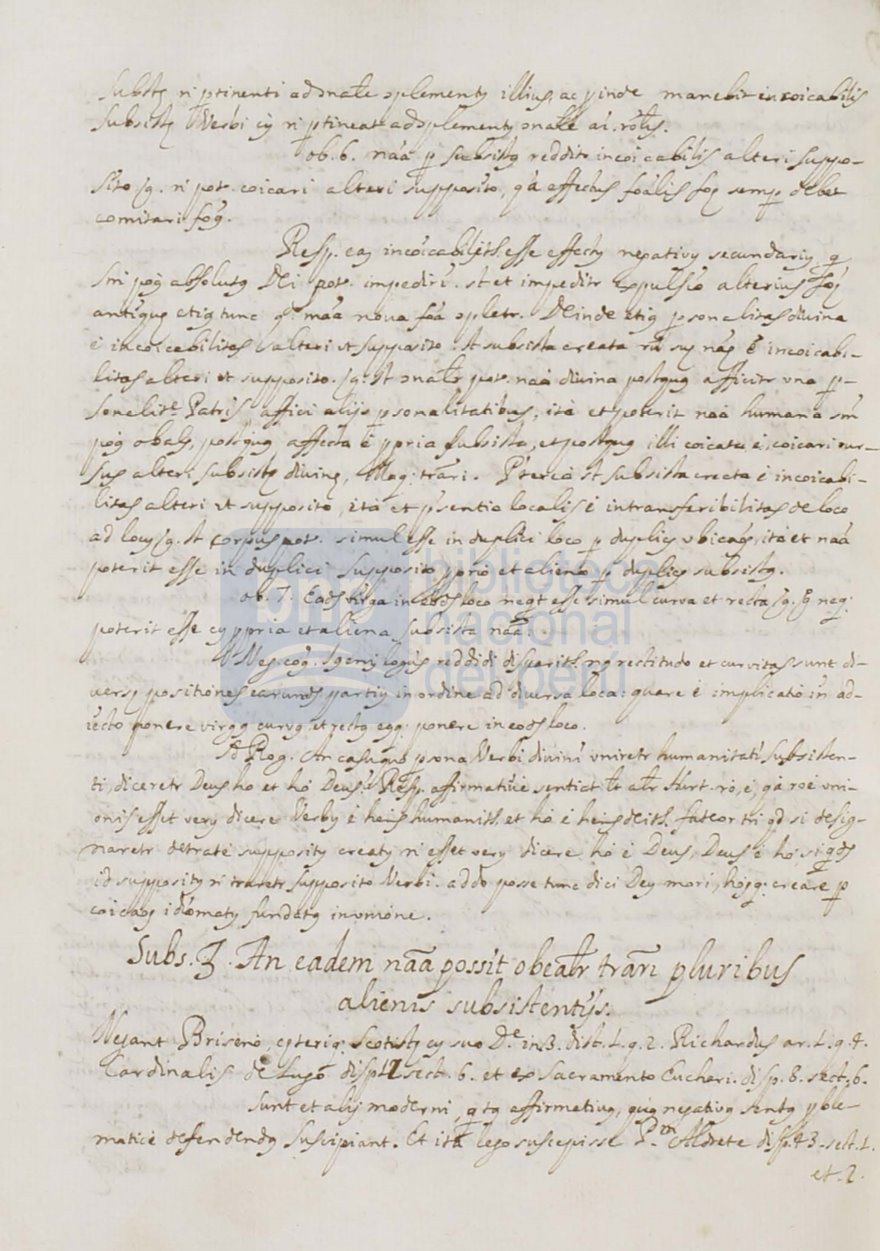 Substę ñ ptinenti ad ɔnale ɔplementų illius, ac pinde manebit incoicabilis
Subsistę Verbi cų ñ ptineat ad ɔplementų ɔnale aĩ. rõlis.
ob. 6. nãa p subsistą redditr incoicabilis alteri suppo-
sito sg. ñ pot. coicari alteri supposito, qã effectus foãlis foę semp debet
comitari foą.
Resp. eaą incõicabilits. esse effectų negativų secundarių q
sm poą absolutą Dei pot. impediri. st et impeditr expulsio alterius foę
antiquę etią tunc qd. mãa nova foã ɔpletr. Deinde etią psonalitas divina
ẽ incoicabilitas alteri ut supposito st subsista creata rũ suę nãę ẽ incoicabi-
litas alteri ut supposito. sg. st ɔnalr pot. naã divina postquą afficitr una p-
sonalite. Patris affici alijs psonalitatibus, ità et poterit naã humana sm
poą obalę, postquą affecta ẽ ppria subsista, et postquą illi coicata ẽ, coicari rur-
sus alteri subsistę divinę, Mag. trãri. Pterea st subsista creata ẽ incoicabi-
litas alteri ut supposito, ità et psentia localis ẽ intransferibilitas de loco
ad locų sg. st corpus pot. simul esse in duplici loco p duplicę ubicaoę, ità et naã
poterit esse in duplici supposito pprio et alieno p duplicę subsistą.
ob. 7. Eadę virga in eodę loco neqt esse simul curva et recta sg. neq;
poterit esse cų ppria et aliena subsista naã.
Neg. coą. sgenij logus reddidi disparits. ną rectitudo et curvitas sunt di-
versę positiones earundę partių in ordine ad diversa loca: quare ẽ implicatò in ad-
iecto ponere virgą curvą et rectą eąq; ponere in eodę loco.
Rog. An casu quo psona Verbi divini uniretr humanitati subsisten-
ti, diceretr Deus ho et hò Deus? Resp. affirmative sentiat lt altr Hurt. rò, ẽ, qã rõe uni-
onis esset verų dicere Verbų ẽ heñs humanits. et hò ẽ heñs deits. fateor tñ qd si desig-
naretr detratè suppositų creatų ñ esset verų dicere hò ẽ Deus, Deus ẽ hò siqdę
id suppositų ñ traretr supposito Verbi. addo posse tunc dici Deų mori, hòięq; creare p
coicaoę idiomatų fundatą in unione.
Subs. 3. An eadem nãa possit obealr trãri pluribus
alienis subsistentijs.
Negant Briseno, cęteriq; Scotistę cų suo De. in 3. dist. 1. q. 2. Richardus ar. 1. q. 4.
Cardinalis de Lugo disp. 12 sect. 6. et ex Sacramento Euchari. disp. 8. sect. 6.
Sunt et alij moderni, q tą affirmativą, quą negativą sentą pble-
maticè defendendą suscipiant. Et ità lego suscepisse P.m Aldrete disp. 43. sect. 1.
et. 2.
biblioteca
nacional
del perú